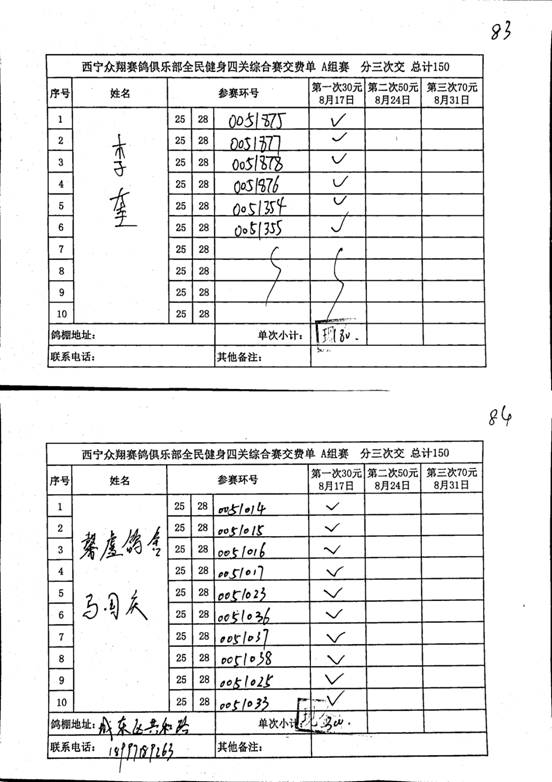 83
西宁众翔赛鸽俱乐部全民健身四关综合赛交费单 A组赛 分三次交 总计150
序号 姓名 参赛环号 第一次30元 8月17日 第二次50元 8月24日 第三次70元 8月31日
李奎
1 25 28 0051875 ✓
2 25 28 0051877 ✓
3 25 28 0051878 ✓
4 25 28 0051876 ✓
5 25 28 0051354 ✓
6 25 28 0051355 ✓
7 25 28
8 25 28
9 25 28
10 25 28
鸽棚地址： 单次小计： 现
联系电话： 其他备注：
84
西宁众翔赛鸽俱乐部全民健身四关综合赛交费单 A组赛 分三次交 总计150
序号 姓名 参赛环号 第一次30元 8月17日 第二次50元 8月24日 第三次70元 8月31日
馨虚鸽舍
马国庆
1 25 28 0051014 ✓
2 25 28 0051015 ✓
3 25 28 0051016 ✓
4 25 28 0051017 ✓
5 25 28 0051023 ✓
6 25 28 0051036 ✓
7 25 28 0051037 ✓
8 25 28 0051038 ✓
9 25 28 0051025 ✓
10 25 28 0051033 ✓
鸽棚地址：城东区共和路 单次小计 现 300.
联系电话：18997189263 其他备注：